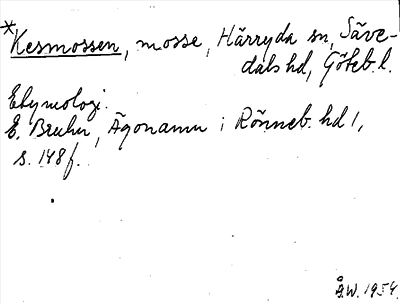 *Kesmossen, mosse, Härryda sn, Säve-
dals hd, Göteb. l.
Etymologi.
E. Bruhn, Ägonamn i Rönneb. hd 1,
s. 148 f.
Å.W. 1954.